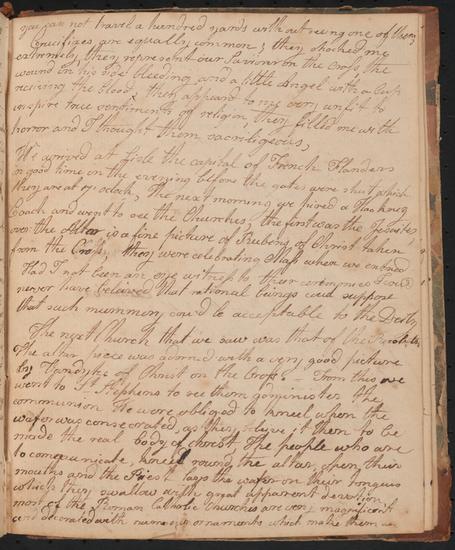 you can not travel a hundred yards without seeing one of them,
Crucifixes are equally common; they shocked me
extremely, they represent our Saviour on the Cross, the
wound in his side bleeding and a little Angel with a Cup
receiving the Blood, they appeard to me very unfit to
inspire true sentiments of religion, they filled me with
horror and I thought them sacriligeous,
We arrived at Lisle the capital of French Flanders
in good time in the evening before the gates were shut which
they are at 7 oclock, The next morning we hired a Hackney
Coach and went to see the Churches, the first was the Jesuites,
over the Altar is a fine picture of Rubens of Christ taken
from the Cross, they were celebrating Mass when we entered
Had I not been an eye witness to their ceremonies I could
never have beleived that rational beings could suppose
that such mummery could be acceptable to the Deity
The next Church that we saw was that of the
The altar peice was adorned with a very good picture
by Vandyke of Christ on the Cross. – From this we
went to St. Stephens to see them administer the
communion We were obliged to kneel when the
wafer was consecrated, as they believe it then to be
made the real body of christ The people who are
to communicate kneel round the altar, open their
mouths and the Priest lays the wafer on their tongues
which they swallow with great apparent devotion,
most of the Roman Catholic Churches are very magnificent
and decorated with numerous ornaments which make them